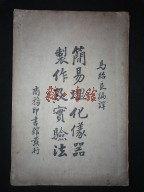 馬紹良編譯
簡易理化儀器
製作及實驗法
商務印書館發行